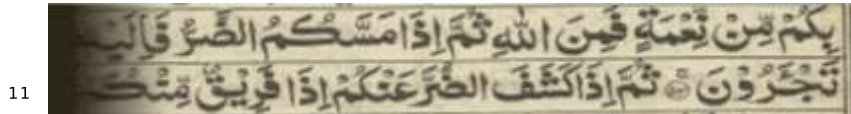 بِكُمْ مِّنْ نِّعْمَةٍ فَمِنَ اللّٰهِ ثُمَّ اِذَا مَسَّكُمُ الضُّرُّ فَاِلَيْهِ
تَجْـَٔرُوْنَ ثُمَّ اِذَا كَشَفَ الضُّرَّ عَنْكُمْ اِذَا فَرِيْقٌ مِّنْكُمْ
11